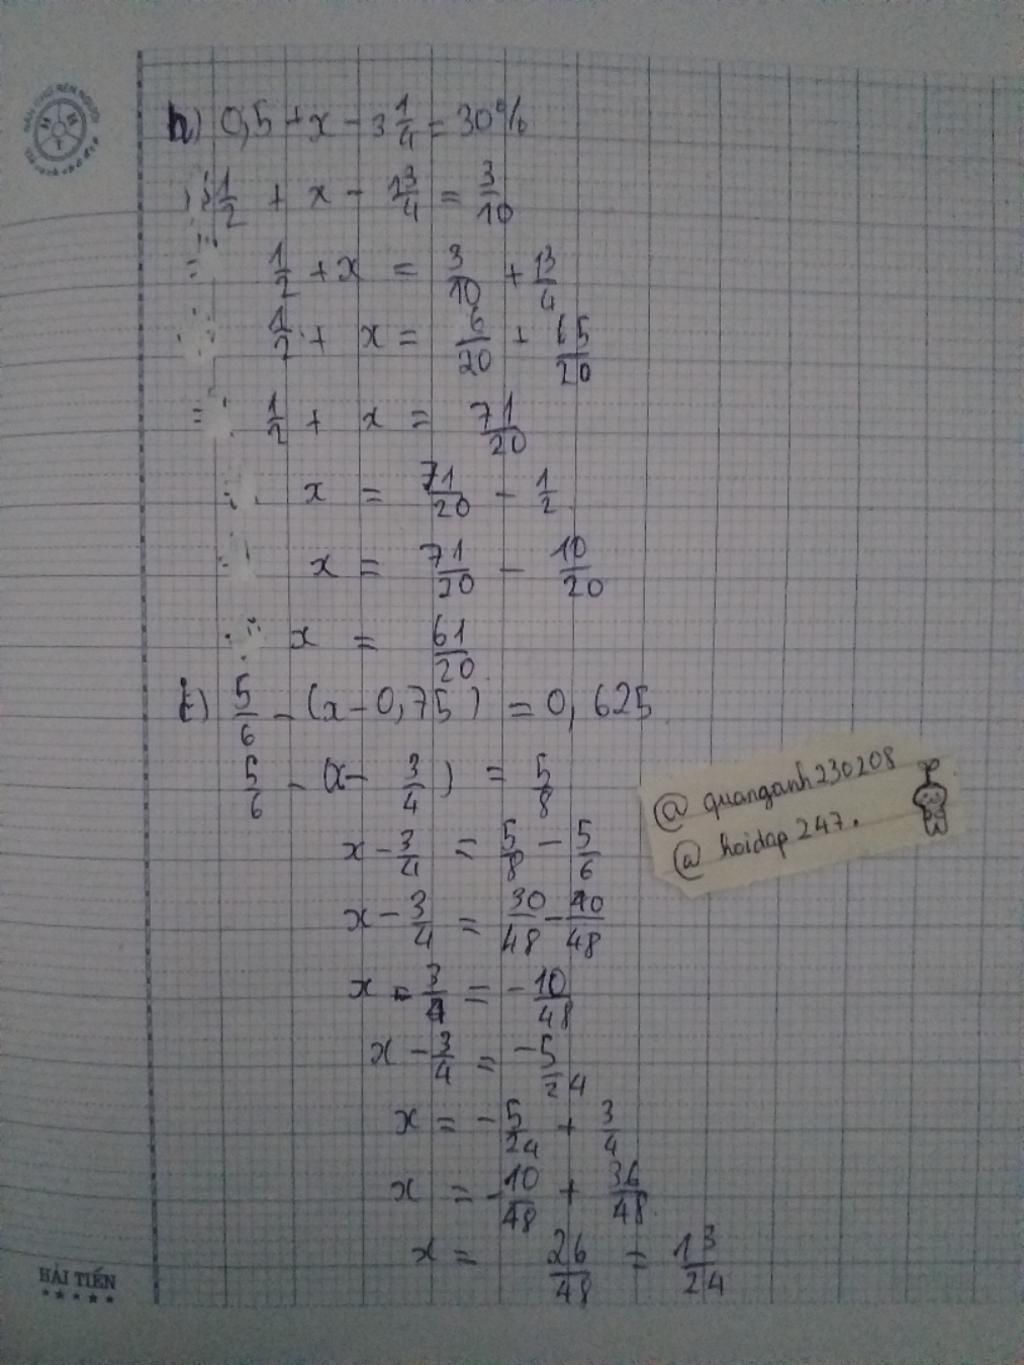 h) 0,5 + x - 3 1/4 = 30%
1/2 + x - 13/4 = 3/10
1/2 + x = 3/10 + 13/4
1/2 + x = 6/20 + 65/20
= 1/2 + x = 71/20
x = 71/20 - 1/2
x = 71/20 - 10/20
x = 61/20
t) 5/6 - (x - 0,75) = 0,625
5/6 - (x - 3/4) = 5/8
x - 3/4 = 5/8 - 5/6
x - 3/4 = 30/48 - 40/48
x - 3/4 = -10/48
x - 3/4 = -5/24
x = -5/24 + 3/4
x = -10/48 + 36/48
x = 26/48 = 13/24
@ quanganh230208
@ hoidap 247.
HẢI TIẾN